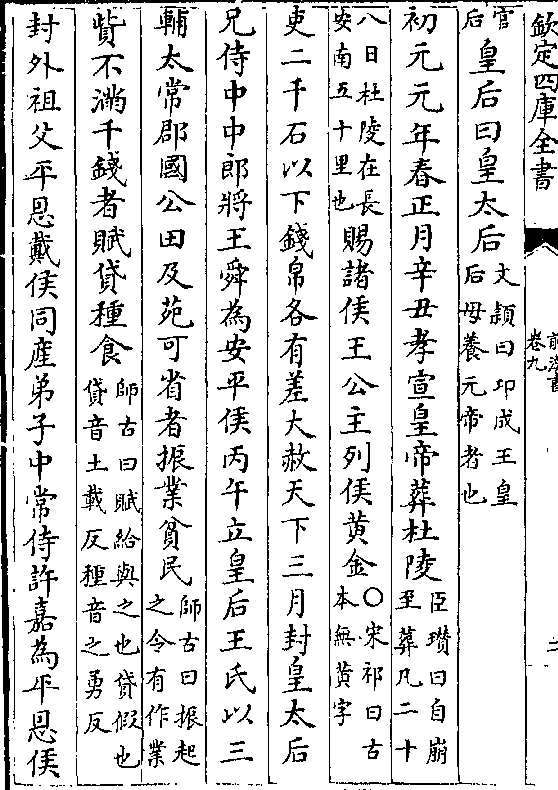 欽定四庫全書
前漢書
卷九
二
官
后
皇后曰皇太后
文頴曰卭成王皇
后母養元帝者也
初元元年春正月辛丑孝宣皇帝葬杜陵
臣瓉曰自崩
至葬凡二十
八日杜陵在長
安南五十里也
賜諸侯王公主列侯黃金
〇宋祁曰古
本無黃字
吏二千石以下錢帛各有差大赦天下三月封皇太后
兄侍中中郎將王舜為安平侯丙午立皇后王氏以三
輔太常郡國公田及苑可省者振業貧民
師古曰振起
之令有作業
貲不滿千錢者賦貸種食
師古曰賦給與之也貸假也
貸音土載反種音之勇反
封外祖父平恩戴侯同産弟子中常侍許嘉為平恩侯